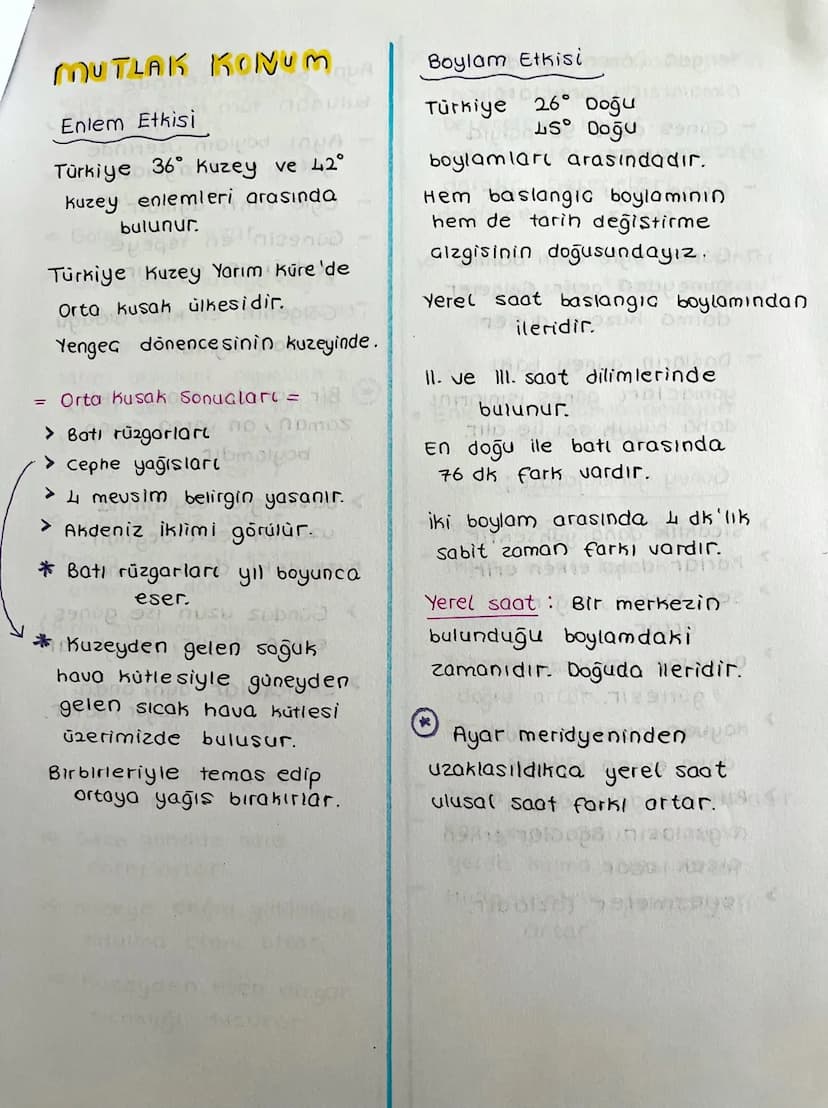 MUTLAK KONUM
Enlem Etkisi
Türkiye 36° Kuzey ve 42°
Kuzey enlemleri arasında
bulunur.
Türkiye Kuzey Yarım Küre'de
Orta kusak ülkesidir.
Yengec dönencesinin kuzeyinde.
= Orta Kusak Sonucları =
> Batı rüzgarları
> Cephe yağısları
> 4 mevsim belirgin yasanır.
> Akdeniz iklimi görülür.
* Batı rüzgarları yıl boyunca
eser.
* Kuzeyden gelen soğuk
hava kütlesiyle güneyden
gelen sıcak hava kütlesi
üzerimizde bulusur.
Birbirleriyle temas edip
ortaya yağıs bırakırlar.
Boylam Etkisi
Türkiye 26° Doğu
45° Doğu
boylamları arasındadır.
Hem baslangıc boylamının
hem de tarih değistirme
cizgisinin doğusundayız.
Yerel saat baslangıc boylamından
ileridir.
II. ve III. saat dilimlerinde
bulunur.
En doğu ile batı arasında
76 dk fark vardır.
İki boylam arasında 4 dk'lık
sabit zaman farkı vardır.
Yerel saat : Bir merkezin
bulunduğu boylamdaki
zamanıdır. Doğuda ileridir.
* Ayar meridyeninden
uzaklasıldıkca yerel saat
ulusal saat farkı artar.